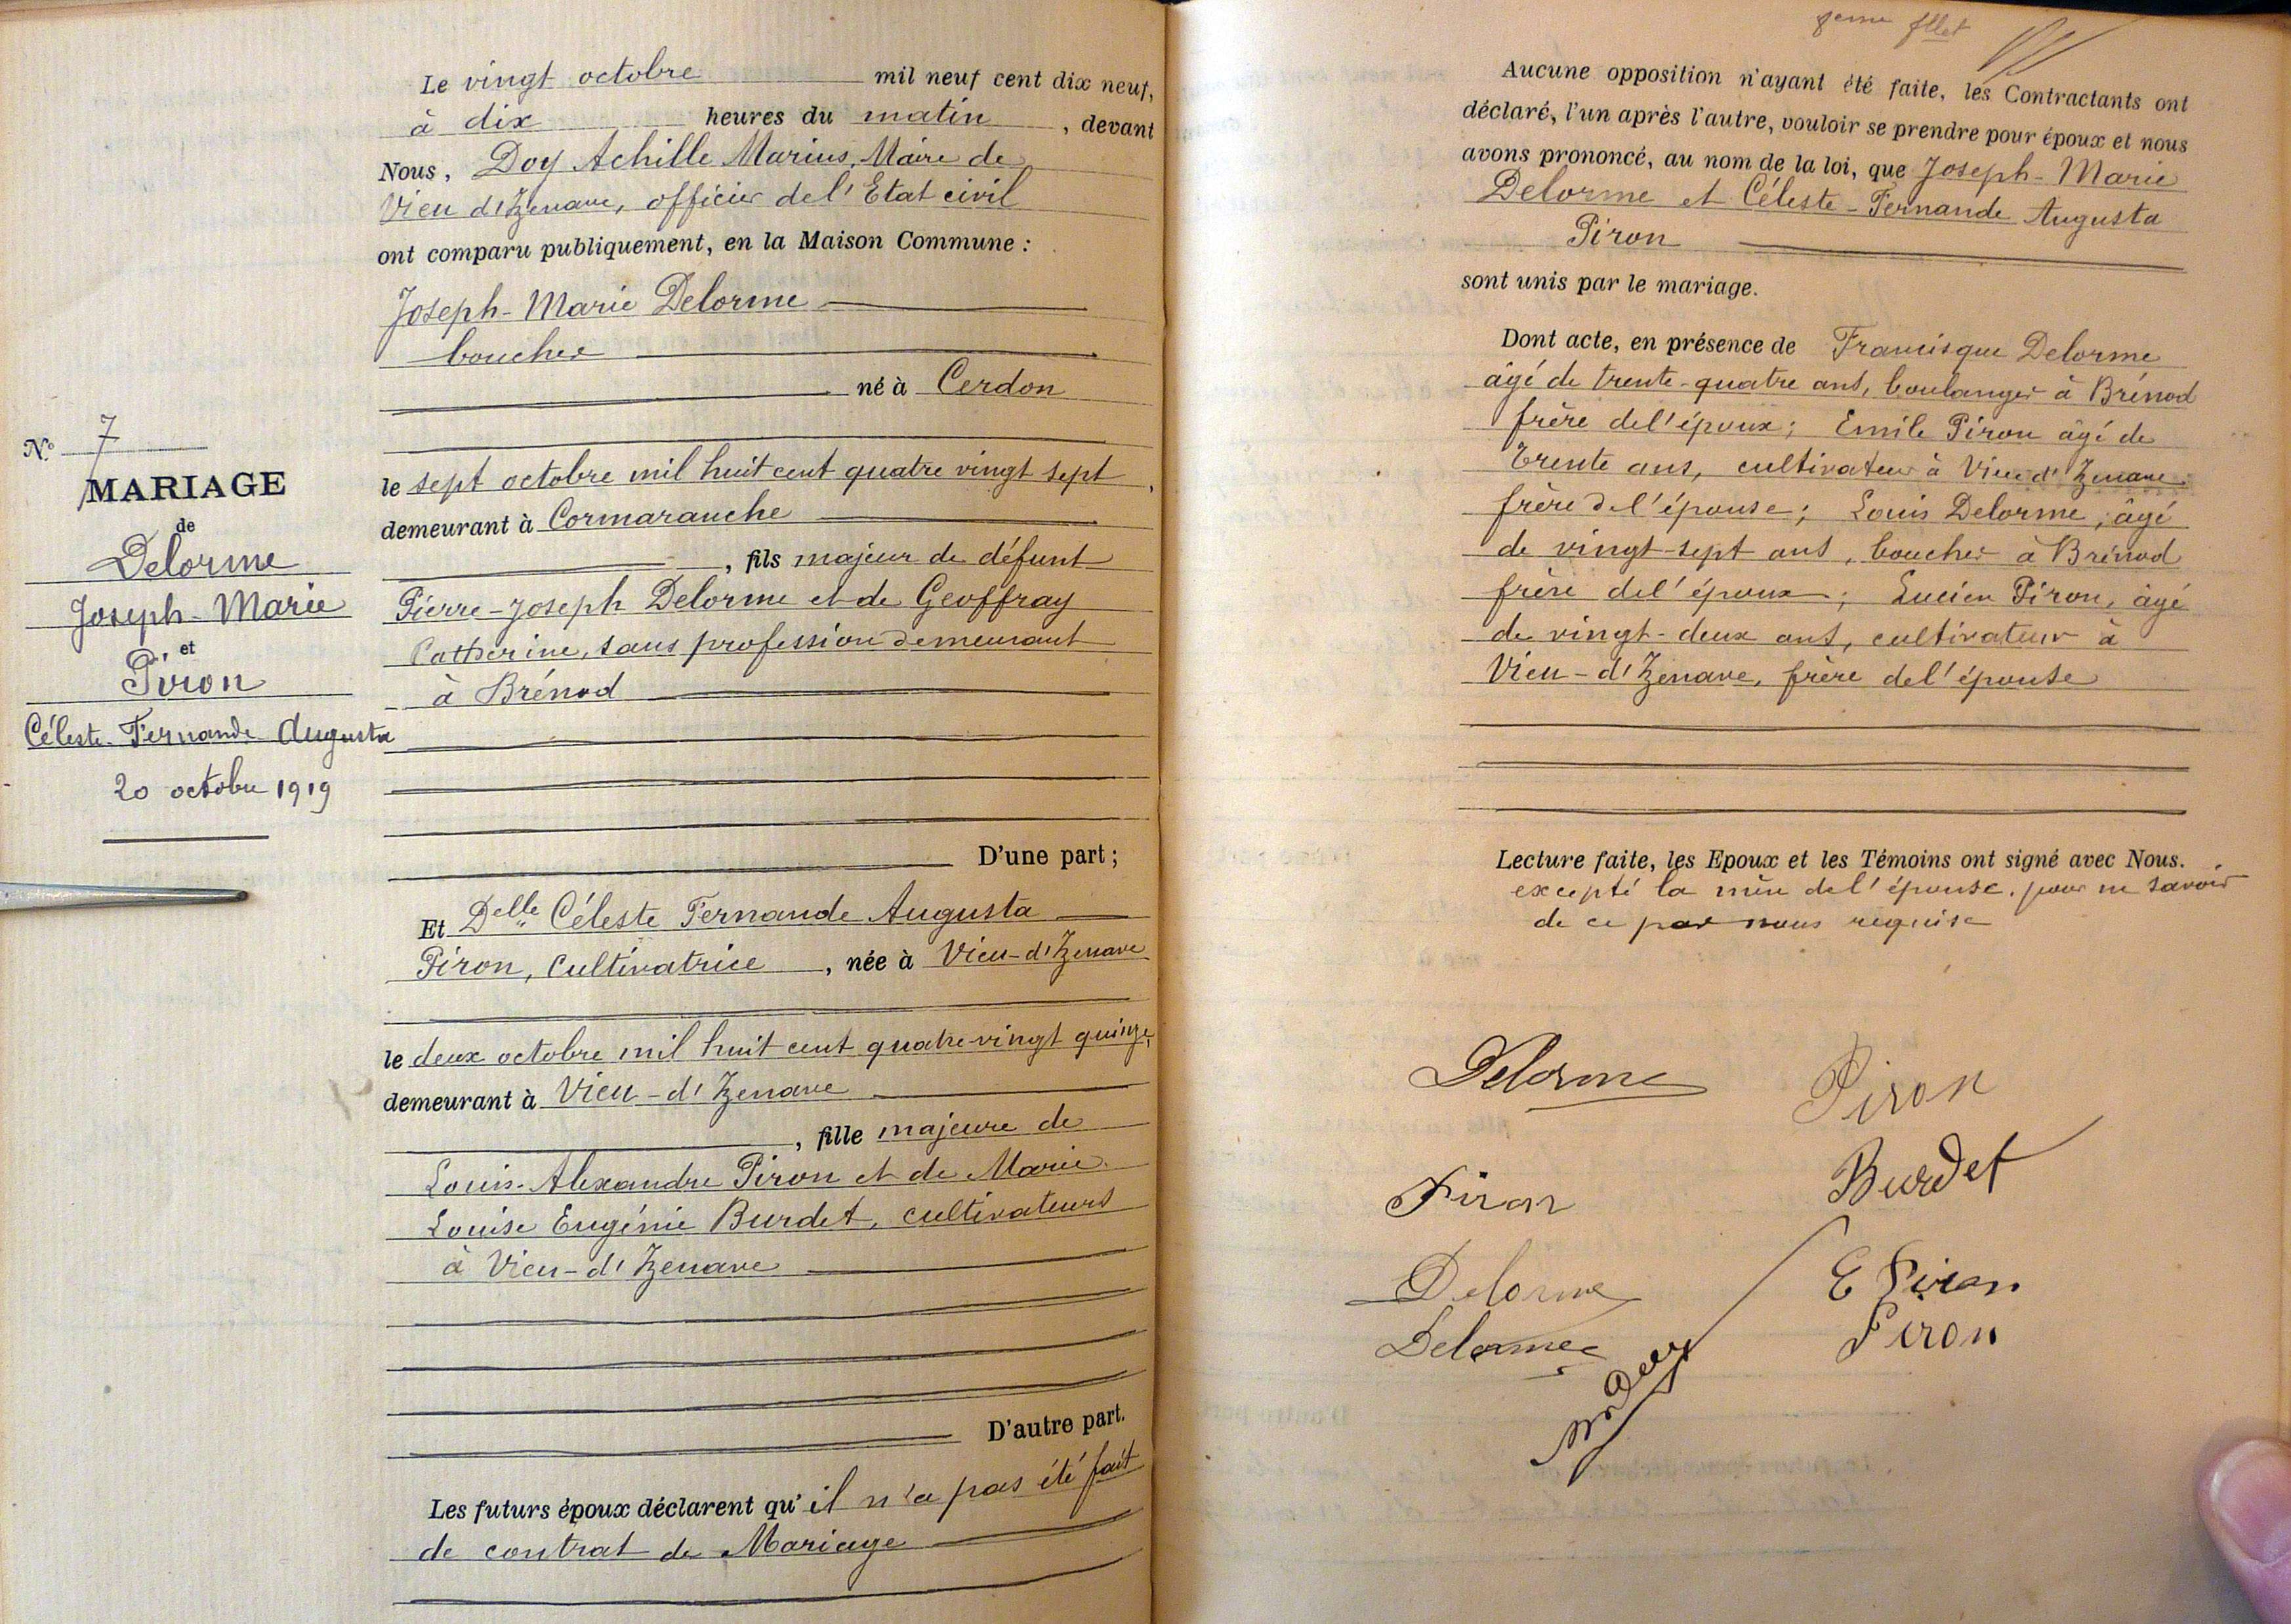 N.o 7
MARIAGE
de
Delorme
Joseph-Marie
et
Piron
Céleste-Fernande Augusta
20 octobre 1919
Le vingt octobre mil neuf cent dix neuf,
à dix heures du matin, devant
Nous, Doy Achille Marius, Maire de
Vieu d'Izenave, officier de l'Etat civil
ont comparu publiquement, en la Maison Commune :
Joseph-Marie Delorme
boucher
né à Cerdon
le sept octobre mil huit cent quatre vingt sept,
demeurant à Cormaranche
, fils majeur de défunt
Pierre-Joseph Delorme et de Geoffray
Catherine, sans profession demeurant
à Brénod
D'une part ;
Et Delle Céleste Fernande Augusta
Piron, Cultivatrice, née à Vieu-d'Izenave
le deux octobre mil huit cent quatre-vingt quinze,
demeurant à Vieu-d'Izenave
, fille majeure de
Louis-Alexandre Piron et de Marie
Louise Eugénie Burdet, cultivateurs
à Vieu-d'Izenave
D'autre part.
Les futurs époux déclarent qu'il n'a pas été fait
de contrat de Mariage
Aucune opposition n'ayant été faite, les Contractants ont
déclaré, l'un après l'autre, vouloir se prendre pour époux et nous
avons prononcé, au nom de la loi, que Joseph-Marie
Delorme et Céleste-Fernande Augusta
Piron
sont unis par le mariage.
Dont acte, en présence de Francisque Delorme
âgé de trente-quatre ans, boulanger à Brénod
frère de l'époux; Emile Piron âgé de
Trente ans, cultivateur à Vieu d'Izenave
frère de l'épouse; Louis Delorme, âgé
de vingt-sept ans, boucher à Brénod
frère de l'époux; Lucien Piron, âgé
de vingt-deux ans, cultivateur à
Vieu-d'Izenave, frère de l'épouse
Lecture faite, les Epoux et les Témoins ont signé avec Nous.
excepté la mère de l'épouse, pour ne savoir
de ce par nous requise
Delorme
Piron
Piron
Burdet
Delorme
E Piron
Delorme
Piron